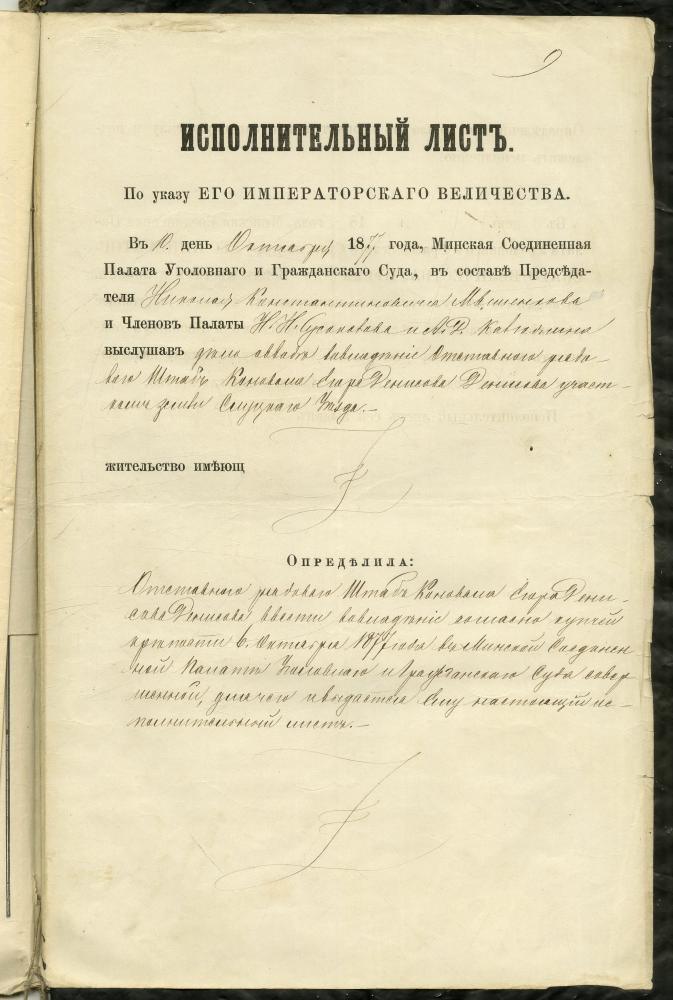 9
ИСПОЛНИТЕЛЬНЫЙ ЛИСТЪ.
По указу ЕГО ИМПЕРАТОРСКАГО ВЕЛИЧЕСТВА.
Въ 10. день Октября 1877 года, Минская Соединенная
Палата Уголовнаго и Гражданскаго Суда, въ составѣ Предсѣда-
теля Николая Константиновича
и Членовъ Палаты Н. Н. и А. Д.
выслушавъ дѣло о вводѣ во владѣніе Отставного рядо-
вого Штабъ Коновала Егора Денисова Денисова участ-
комъ земли Слуцкаго Уѣзда.—
жительство имѣющ
Опредѣлила:
Отставного рядового Штабъ Коновала Егора Дени-
сова Денисова ввести во владѣніе согласно купчей
крѣпости 6. Октября 1877 года въ Минской Соединен-
ной Палатѣ Уголовнаго и Гражданскаго Суда совер-
шенной, для чего и выдается Ему настоящій ис-
полнительный листъ.—